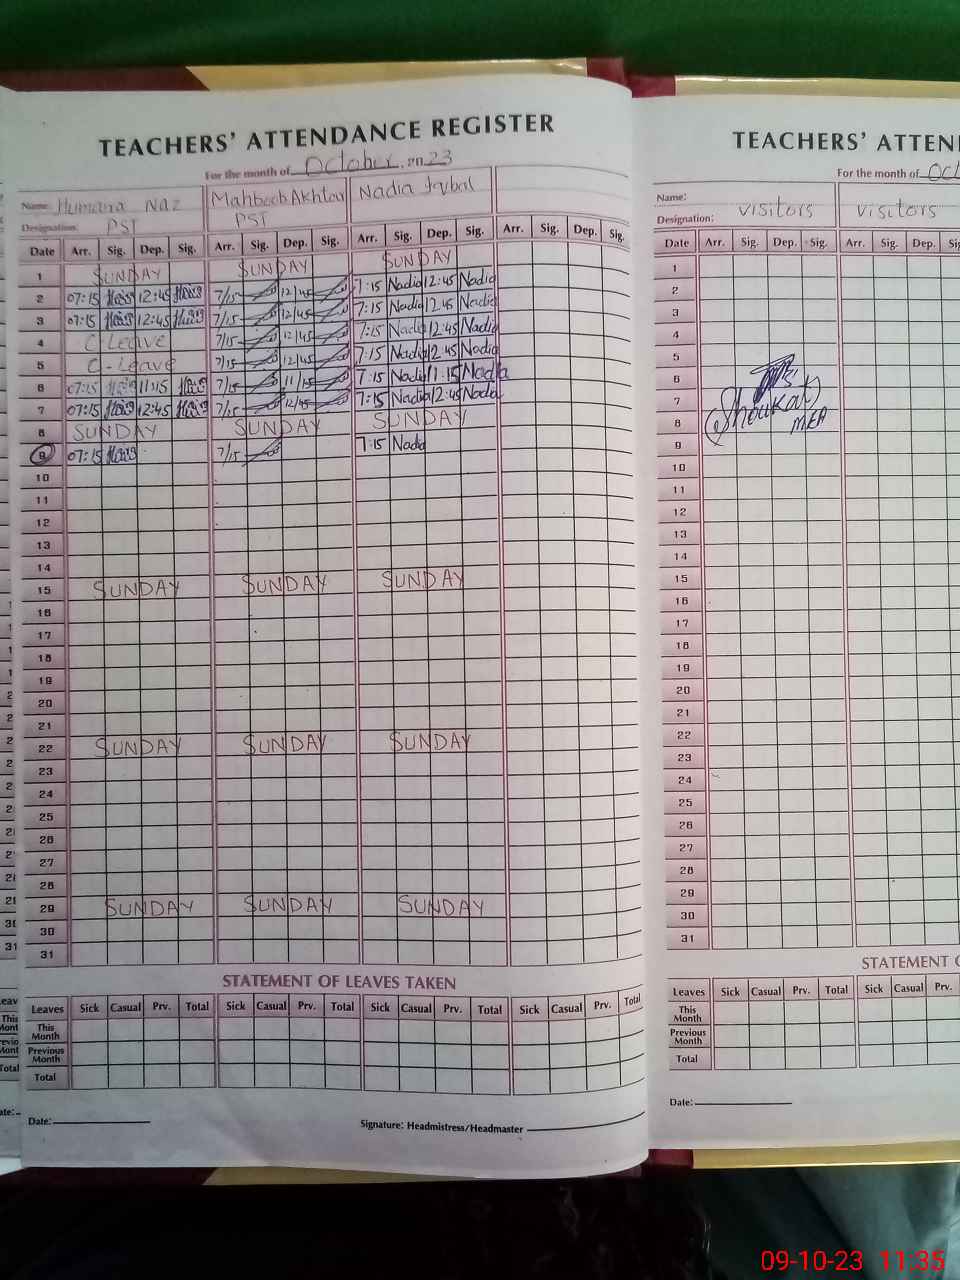 TEACHERS' ATTENDANCE REGISTER
For the month of October. 2023
Name: Humaira Naz Mahboob Akhtar Nadia Iqbal
Designation: PST PST
Date Arr. Sig. Dep. Sig. Arr. Sig. Dep. Sig. Arr. Sig. Dep. Sig. Arr. Sig. Dep. Sig.
1 SUNDAY SUNDAY SUNDAY
2 07:15 12:45 7/15 12/45 7:15 Nadia 12:45 Nadia
3 07:15 12:45 7/15 12/45 7:15 Nadia 12:45 Nadia
4 C-Leave 7/15 12/45 7:15 Nadia 12:45 Nadia
5 C-Leave 7/15 12/45 7:15 Nadia 12:45 Nadia
6 07:15 11:15 7/15 11/15 7:15 Nadia 11:15 Nadia
7 07:15 12:45 7/15 12/45 7:15 Nadia 12:45 Nadia
8 SUNDAY SUNDAY SUNDAY
9 07:15 7/15 7:15 Nadia
10
11
12
13
14
15 SUNDAY SUNDAY SUNDAY
16
17
18
19
20
21
22 SUNDAY SUNDAY SUNDAY
23
24
25
26
27
28
29 SUNDAY SUNDAY SUNDAY
30
31
STATEMENT OF LEAVES TAKEN
Leaves Sick Casual Prv. Total Sick Casual Prv. Total Sick Casual Prv. Total Sick Casual Prv. Total
This Month
Previous Month
Total
Date: Signature: Headmistress/Headmaster
TEACHERS' ATTEN
For the month of Oct
Name:
Designation: visitors visitors
Date Arr. Sig. Dep. Sig. Arr. Sig. Dep. Sig
1
2
3
4
5
6
7
8 (Shoukat) MEA
9
10
11
12
13
14
15
16
17
18
19
20
21
22
23
24
25
26
27
28
29
30
31
STATEMENT O
Leaves Sick Casual Prv. Total Sick Casual Prv.
This Month
Previous Month
Total
Date:
09-10-23 11:35